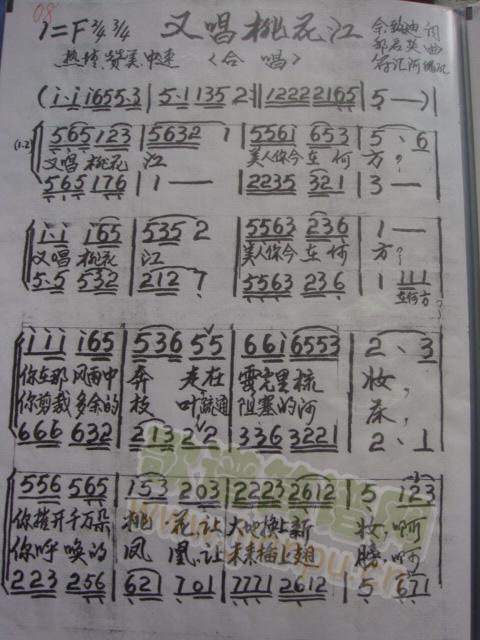 08
1=F 2/4 3/4 又唱桃花江
热情、赞美 中速 〈合 唱〉 
(i·i 1655·3 | 5·1135 2· | 12222165 | 5 — )|
(1.2) 565 123 | 5632 1 | 556i 653 | 5 、 6
又唱 桃花 江 美人你今 在 何 方？
565 176 | 1 — | 2235 321 | 3 —
i·i i65 | 535 2 | 5563 236 | 1 —
又唱 桃花 江 美人你今 在 何 方？
5·5 532 | 212 7 | 5563 236 | 1 111
在何方？
iii i65 | 536 55 | 66i 6553 | 2 、 3
你在那 风雨中 奔 走在 雪宅里梳 妆，
你剪裁 多余的 枝 叶疏通 阻塞的河 床，
666 632 | 213 22 | 336 3221 | 2 、 1
556 565 | 153 203 | 2223 2612 | 5 123
你撑开 千万朵 桃 花让 大地换上新 妆，啊
你呼 唤的 凤 凰，让 未来插上翅 膀，啊
223 256 | 621 701 | 7771 2612 | 5 671